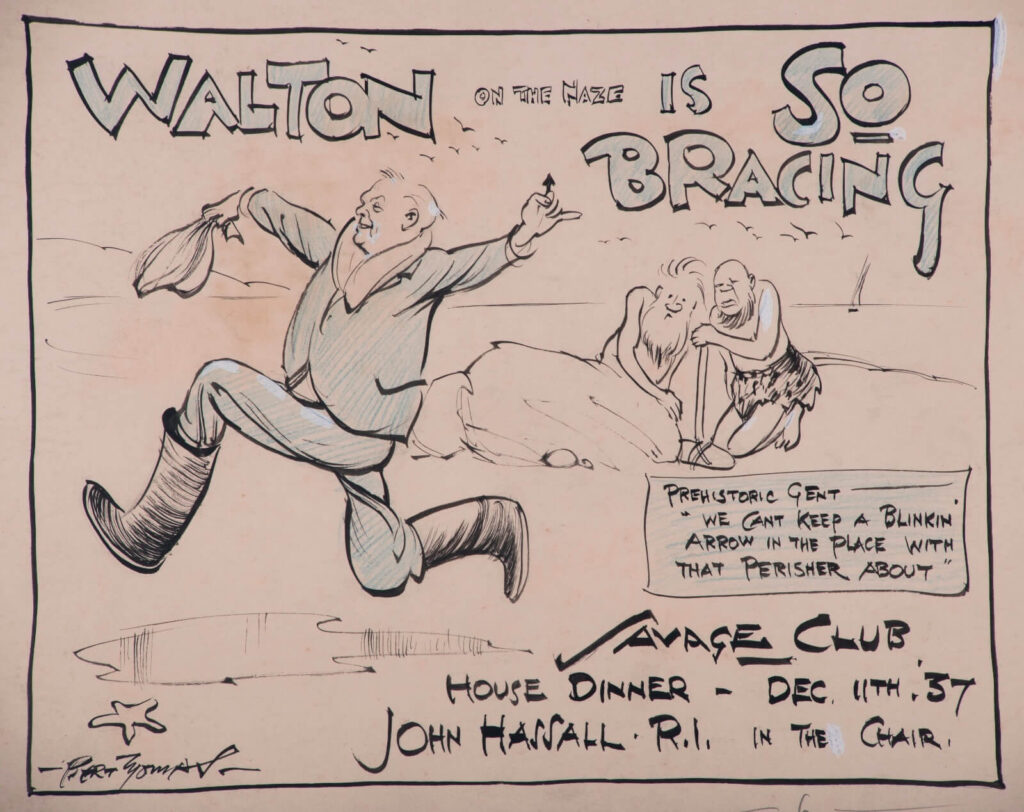 WALTON ON THE NAZE IS SO
BRACING
PREHISTORIC GENT —
"WE CANT KEEP A BLINKIN'
ARROW IN THE PLACE WITH
THAT PERISHER ABOUT"
SAVAGE CLUB.
HOUSE DINNER – DEC. 11TH. 37
JOHN HASSALL. R.I. IN THE CHAIR.
–BERT THOMAS–